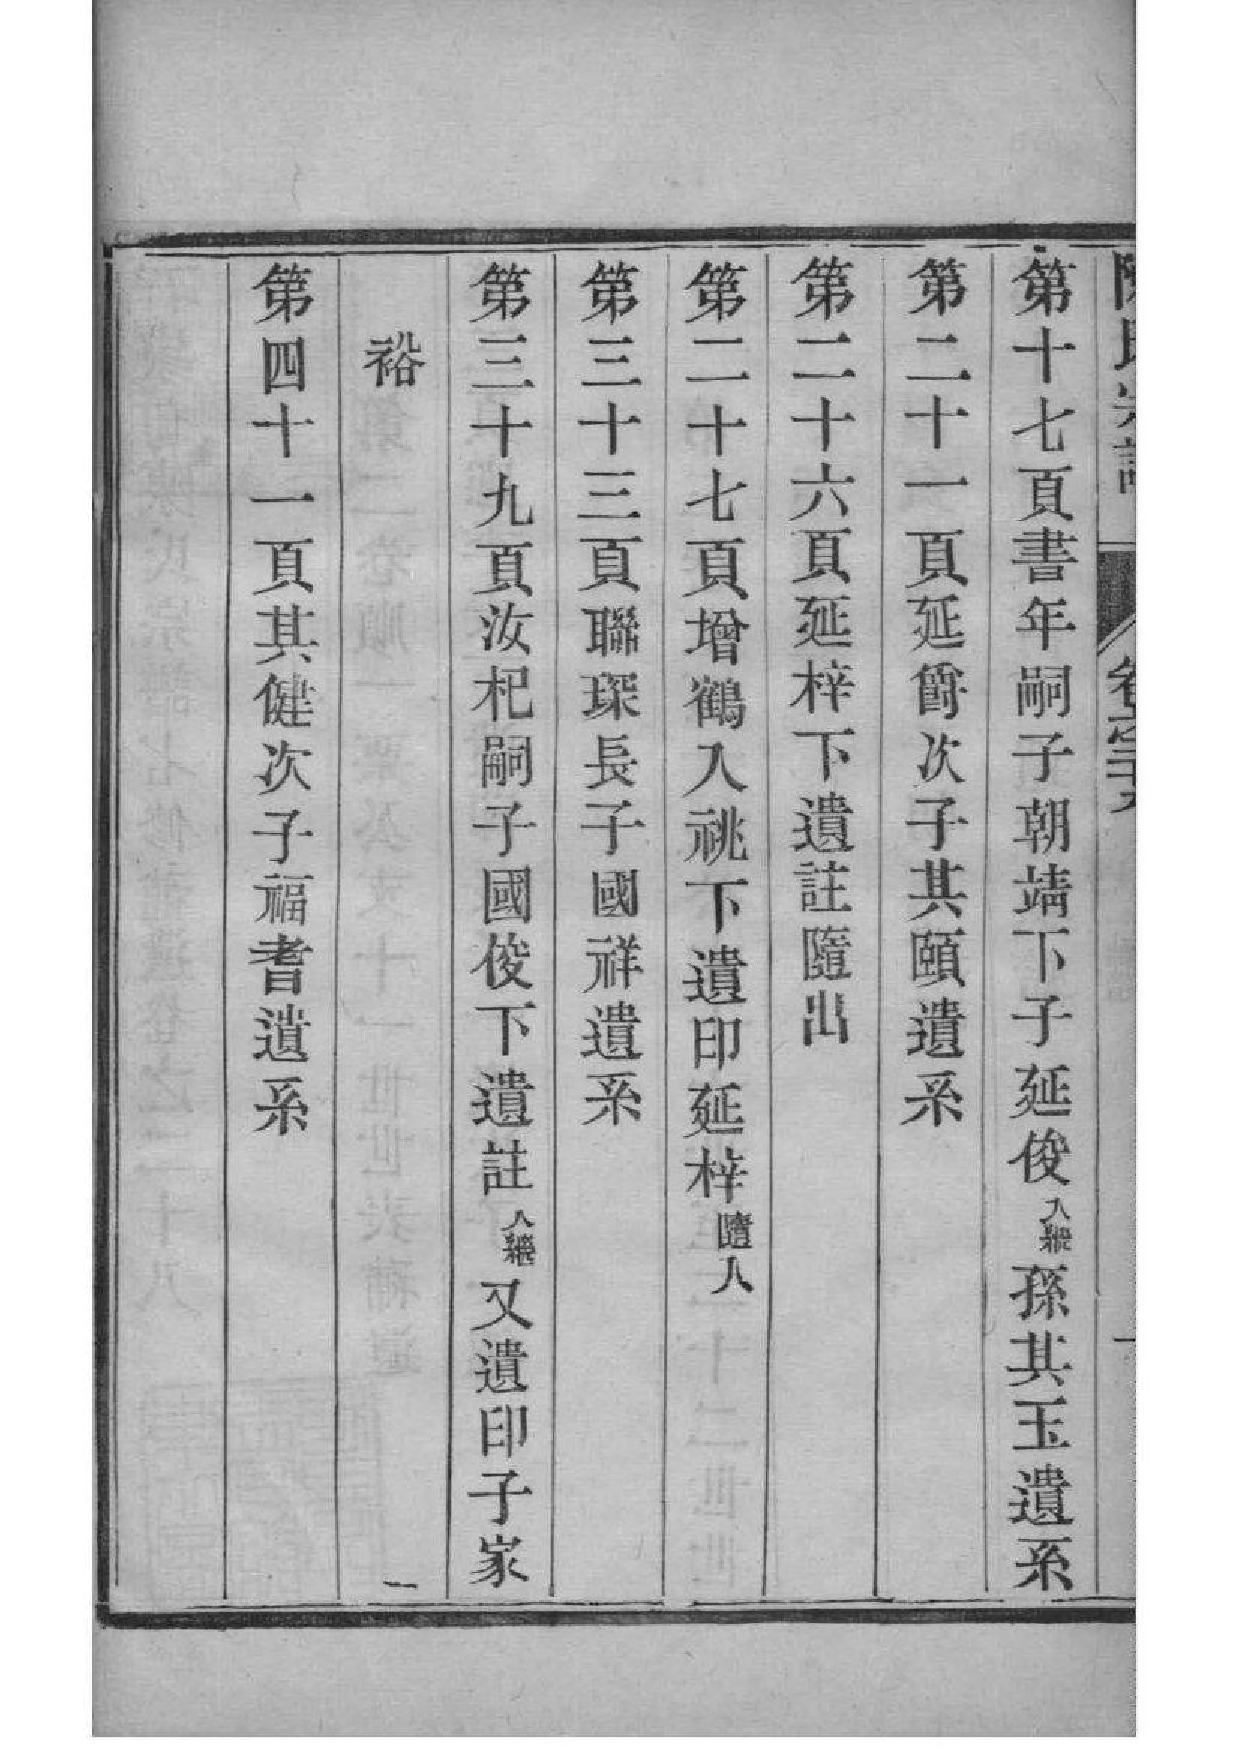 陳氏宗譜 卷之二十九
第十七頁書年嗣子朝靖下子延俊入繼孫其玉遺系
第二十一頁延爵次子其頤遺系
第二十六頁延梓下遺註隨出
第二十七頁增鶴入祧下遺印延梓隨入
第三十三頁聯琛長子國祥遺系
第三十九頁汝杞嗣子國俊下遺註入繼又遺印子家
裕
第四十一頁其健次子福耆遺系